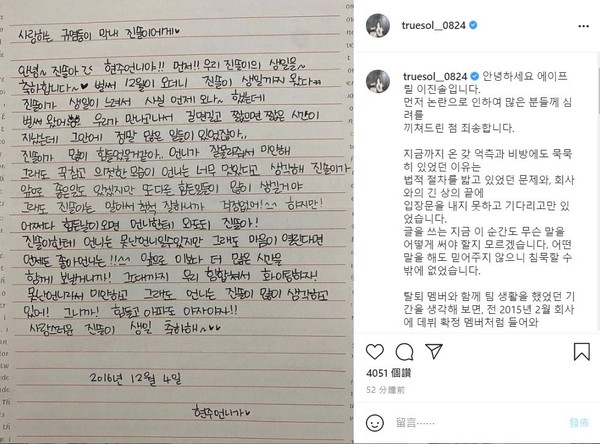 사랑하는 귀염둥이 막내 진쏠이에게♥
안녕~ 진쏠아 현주언니야!! 먼저!! 우리 진쏠이의 생일을~
축하합니다~♥ 벌써 12월이 오더니 진쏠이 생일까지 왔다
진쏠이가 생일이 느려서 사실 언제 와나~ 했는데
벌써 왔어 우리가 만난거나서 길면길고 짧으면 짧은 시간이
지났는데 그안에 정말 많은 일들이 있었잖아..
진쏠이가 많이 힘들었을거같아.. 언니가 잘 미안해
그래도 꾹참고 의젓한 모습이 언니는 너무 멋있다고 생각해 진쏠아
앞으로 좋은일도 있겠지만 또다른 힘든일들이 많이 생길거야
그래도 진쏠이는 알아서 척척 잘하니까 걱정없어!! 하지만!
어쩌다 힘든날이오면 언니한테 와도돼 진쏠아!
진쏠이한테 언니는 못난언니일수있지만 그래도 마음이 열린다면
언제든 좋아언니는!! 앞으로 이보다 더 많은 시간을
함께 보낼거니까! 그때까지 우리 힘합쳐서 화이팅하자!
못난언니라서 미안하고 그래도 언니는 진쏠이 많이 생각하고
있어! 그니까! 힘들고 아파도 야자야자!!
사랑스러운 진쏠이 생일 축하해~♥♥
2016년 12월 4일
현주언니가♥
truesol__0824
truesol__0824 안녕하세요 에이프
릴 이진솔입니다.
먼저 논란으로 인하여 많은 분들께 심
려를
끼쳐드린 점 죄송합니다.
지금까지 온 갖 억측과 비방에도 묵묵
히 있었던 이유는
법적 절차를 밟고 있었던 문제와, 회사
와의 긴 상의 끝에
입장문을 내지 못하고 기다리고만 있
었습니다.
글을 쓰는 지금 이 순간도 무슨 말을
어떻게 써야 할지 모르겠습니다. 어떤
말을 해도 믿어주지 않으니 침묵할 수
밖에 없었습니다.
탈퇴 멤버와 함께 팀 생활을 했었던 기
간을 생각해 보면, 전 2015년 2월 회사
에 데뷔 확정 멤버처럼 들어와
4051 個讚
52 分鐘前
留言⋯⋯
發佈